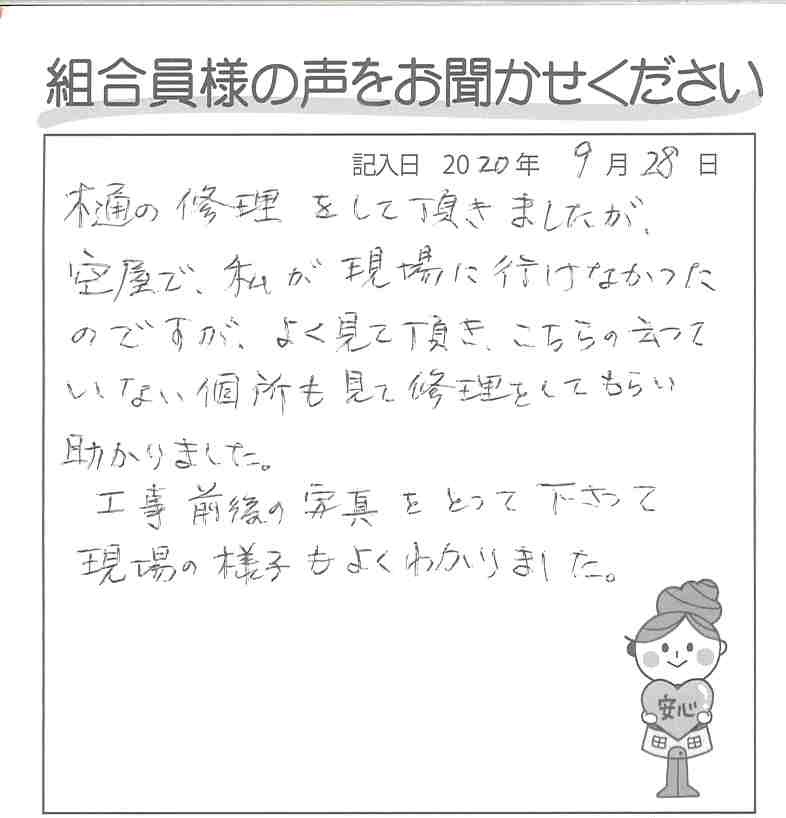 組合員様の声をお聞かせください
記入日 2020年 9月28日
樋の修理をして頂きましたが、
空屋で、私が現場に行けなかった
のですが、よく見て頂き、こちらの云って
いない個所も見て修理をしてもらい
助かりました。
工事前後の写真をとって下さって
現場の様子もよくわかりました。
安心